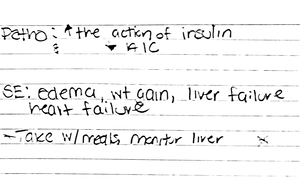 Patho: ↑ the action of insulin
▼ A1C
SE: edema, wt gain, liver failure
heart failure
- Take w/meals, monitor liver